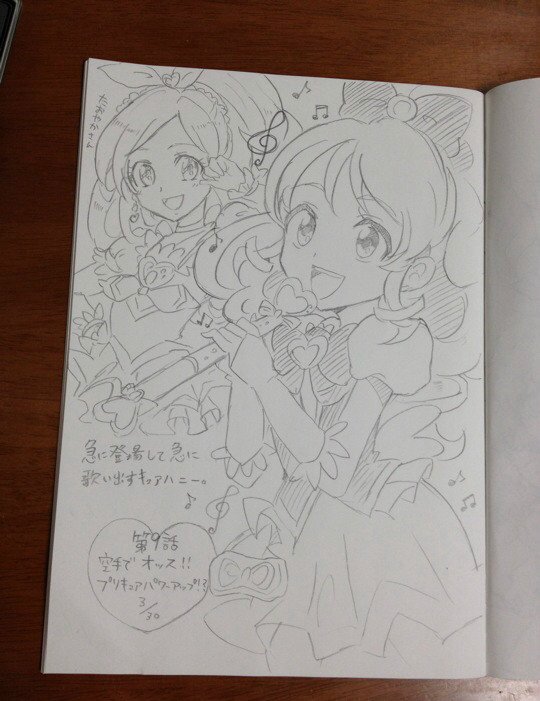 たおやかさん
急に登場して急に
歌い出すキュアハニー。
第9話
空手でオッス!!
プリキュアパワーアップ!?
3/30